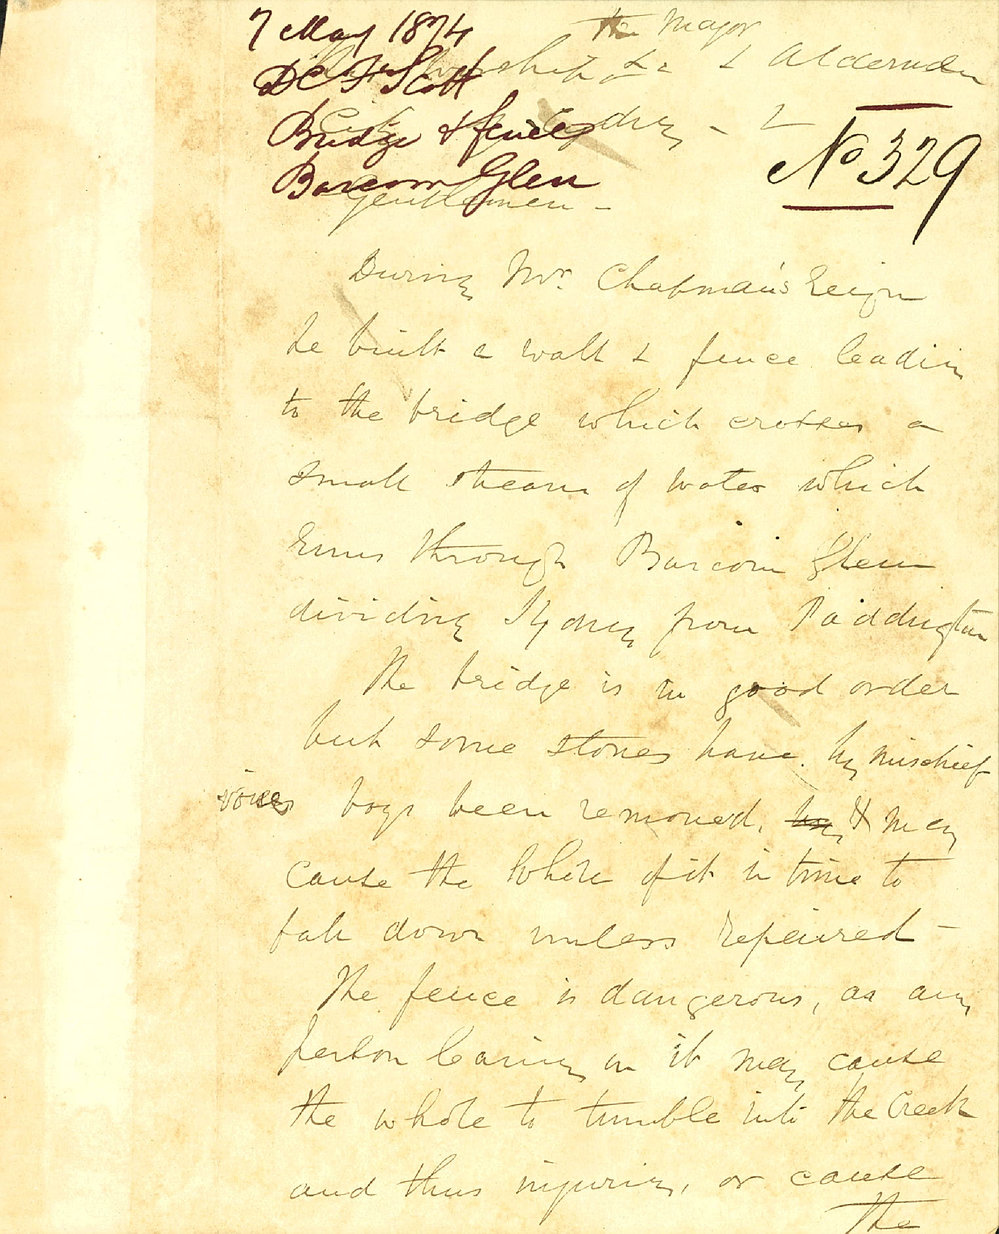 7 May 1874
D C F Scott
Bridge & fence
Barcom Glen
No 329
the Mayor
His Worship & Aldermen
City Sydney -
Gentlemen -
During Mr. Chapman's reign
he built a wall & fence leading
to the bridge which crosses a
small stream of water which
runs through Barcom Glen
dividing Sydney from Paddington
The bridge is in good order
but some stones have by mischief
boys been removed, & may
cause the whole of it in time to
fall down unless repaired -
The fence is dangerous, as any
person leaning on it may cause
the whole to tumble into the Creek
and thus injuring, or cause
the